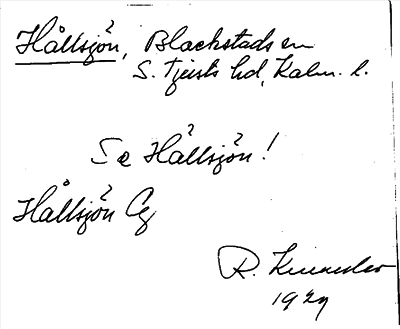 Hållsjön, Blackstads sn
S. Tjusts hd, Kalm. l.
Se Hållsjön!
Hållsjön Cg
R.
1927